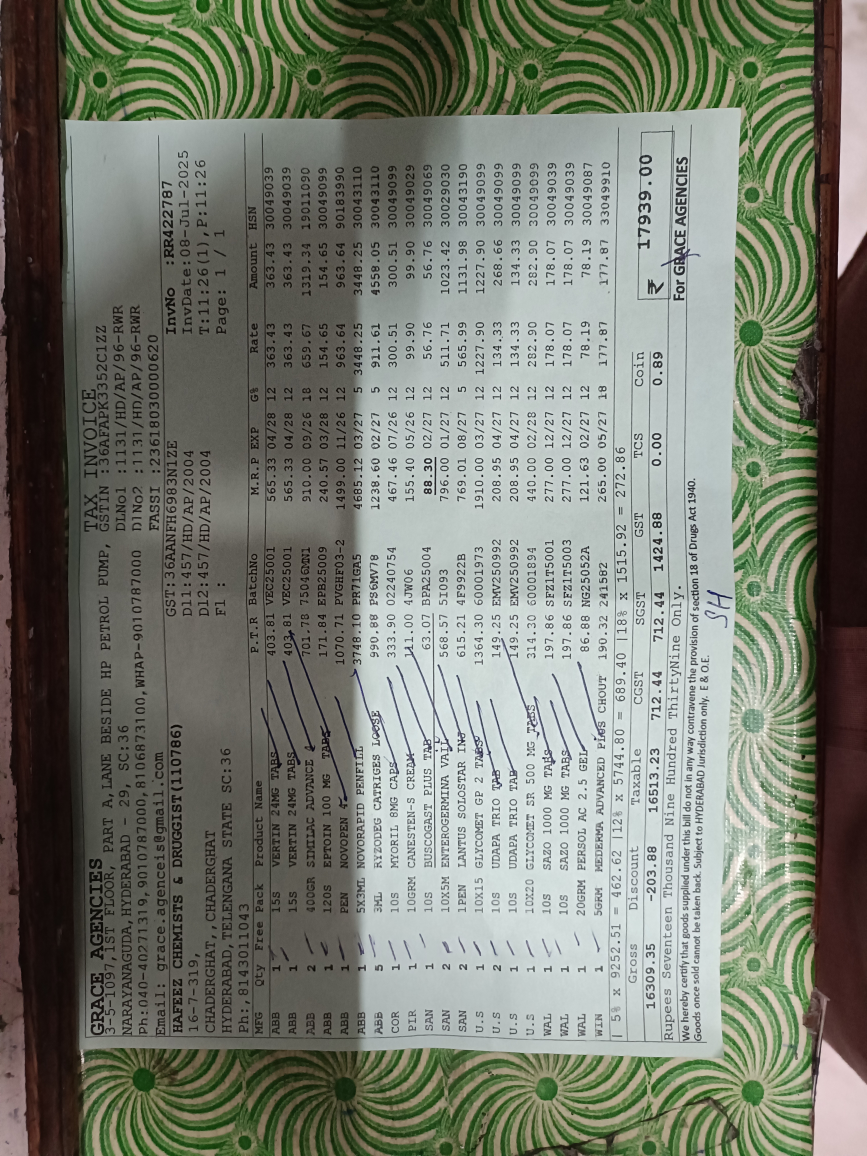 TAX INVOICE
GRACE AGENCIES
3-5-1097,1ST FLOOR, PART A,LANE BESIDE HP PETROL PUMP, GSTIN :36AFAPK3352C1ZZ
NARAYANAGUDA,HYDERABAD - 29, SC:36 DLNo1 :1131/HD/AP/96-RWR
Ph:040-40271319,9010787000,8106873100,WHAP-9010787000 DlNO2 :1131/HD/AP/96-RWR
Email: grace.agenceis@gmail.com FASSI :23618030000620
HAFEEZ CHEMISTS & DRUGGIST(110786) GST:36AANFH6983N1ZE InvNo :RR422787
16-7-319, Dl1:457/HD/AP/2004 InvDate:08-Jul-2025
CHADERGHAT,,CHADERGHAT Dl2:457/HD/AP/2004 T:11:26(1),P:11:26
HYDERABAD,TELENGANA STATE SC:36 Fl : Page: 1 / 1
Ph:,8143011043
MFG Qty Free Pack Product Name P.T.R BatchNo M.R.P EXP G% Rate Amount HSN
ABB 1 15S VERTIN 24MG TABS 403.81 VEC25001 565.33 04/28 12 363.43 363.43 30049039
ABB 1 15S VERTIN 24MG TABS 403.81 VEC25001 565.33 04/28 12 363.43 363.43 30049039
ABB 2 400GR SIMILAC ADVANCE 701.78 75046MN1 910.00 09/26 18 659.67 1319.34 19011090
ABB 1 120S EPTOIN 100 MG TABS 171.84 EPB25009 240.57 03/28 12 154.65 154.65 30049099
ABB 1 PEN NOVOPEN 4 1070.71 PVGHF03-2 1499.00 11/26 12 963.64 963.64 90183990
ABB 1 5X3ML NOVORAPID PENFILL 3748.10 PR71GA5 4685.12 03/27 5 3448.25 3448.25 30043110
ABB 5 3ML RYZODEG CATRIGES LOOSE 990.88 PS6MV78 1238.60 02/27 5 911.61 4558.05 30043110
COR 1 10S MYORIL 8MG CAPS 333.90 02240754 467.46 07/26 12 300.51 300.51 30049099
PIR 1 10GRM CANESTEN-S CREAM 111.00 4JW06 155.40 05/26 12 99.90 99.90 30049029
SAN 1 10S BUSCOGAST PLUS TAB 63.07 BPA25004 88.30 02/27 12 56.76 56.76 30049069
SAN 2 10X5M ENTEROGERMINA VAIL 568.57 5I093 796.00 01/27 12 511.71 1023.42 30029030
SAN 2 1PEN LANTUS SOLOSTAR INJ 615.21 4F9922B 769.01 08/27 5 565.99 1131.98 30043190
U.S 1 10X15 GLYCOMET GP 2 TABS 1364.30 60001973 1910.00 03/27 12 1227.90 1227.90 30049099
U.S 2 10S UDAPA TRIO TAB 149.25 EMV250992 208.95 04/27 12 134.33 268.66 30049099
U.S 1 10S UDAPA TRIO TAB 149.25 EMV250992 208.95 04/27 12 134.33 134.33 30049099
U.S 1 10X20 GLYCOMET SR 500 MG TABS 314.30 60001894 440.00 02/28 12 282.90 282.90 30049099
WAL 1 10S SAZO 1000 MG TABS 197.86 SFZ1T5001 277.00 12/27 12 178.07 178.07 30049039
WAL 1 10S SAZO 1000 MG TABS 197.86 SFZ1T5003 277.00 12/27 12 178.07 178.07 30049039
WAL 1 20GRM PERSOL AC 2.5 GEL 86.88 NG25052A 121.63 02/27 12 78.19 78.19 30049087
WIN 1 5GRM MEDERMA ADVANCED PLUS CHOUT 190.32 241582 265.00 05/27 18 177.87 177.87 33049910
| 5% x 9252.51 = 462.62 |12% x 5744.80 = 689.40 |18% x 1515.92 = 272.86
Gross Discount Taxable CGST SGST GST TCS Coin
16309.35 -203.88 16513.23 712.44 712.44 1424.88 0.00 0.89 ₹ 17939.00
Rupees Seventeen Thousand Nine Hundred ThirtyNine Only.
For GRACE AGENCIES
We hereby certify that goods supplied under this bill do not in any way contravene the provision of section 18 of Drugs Act 1940.
Goods once sold cannot be taken back. Subject to HYDERABAD Jurisdiction only. E & O.E.
SH